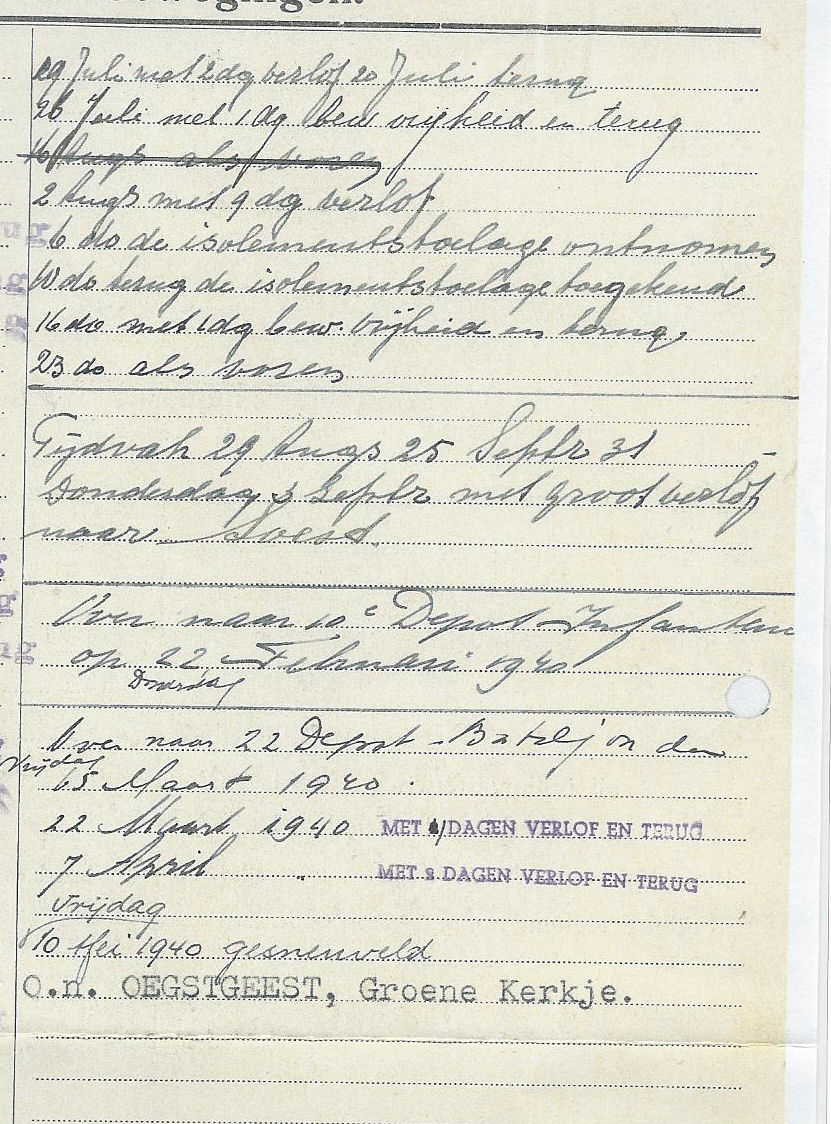 19 Juli met 2dg verlof 20 Juli terug
26 Juli met 1 dg bew vrijheid en terug
16 Augs als voren
2 Augs met 9 dg verlof
6 do de isolementstoelage ontnomen
10 do terug de isolementstoelage toegekend
16 do met 1 dg bew. vrijheid en terug
23 do als voren
Tijdvak 29 Augs 25 Septr 31
Donderdag 3 Septr met groot verlof
naar Soest.
Over naar 10e Depot Infanterie
op 22 Februari 1940
Donderdag
Over naar 22 Depot-Bataljon den
Vrijdag
15 Maart 1940.
22 Maart 1940 MET DAGEN VERLOF EN TERUG
7 April MET DAGEN VERLOF EN TERUG
Vrijdag
10 Mei 1940 gesneuveld
O.n. OEGSTGEEST, Groene Kerkje.